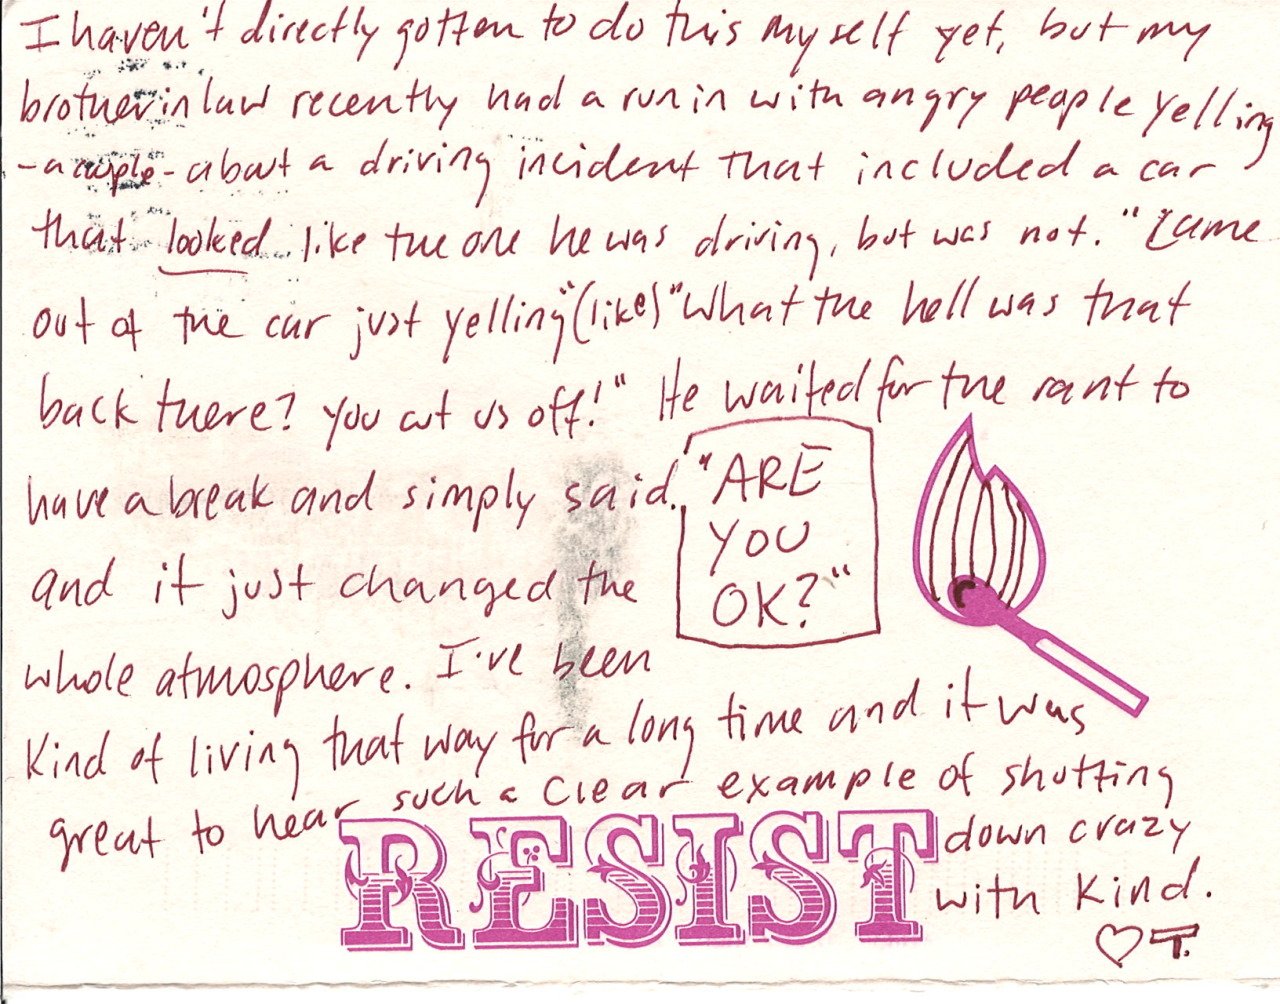 I haven't directly gotten to do this myself yet, but my
brother in law recently had a run in with angry people yelling
- a couple - about a driving incident that included a car
that looked like the one he was driving, but was not. "Came
out of the car just yelling" (like) "What the hell was that
back there? You cut us off!" He waited for the rant to
have a break and simply said. "ARE
YOU
OK?"
and it just changed the
whole atmosphere. I've been
kind of living that way for a long time and it was
great to hear such a clear example of shutting
down crazy
with kind.
♡ T.
RESIST